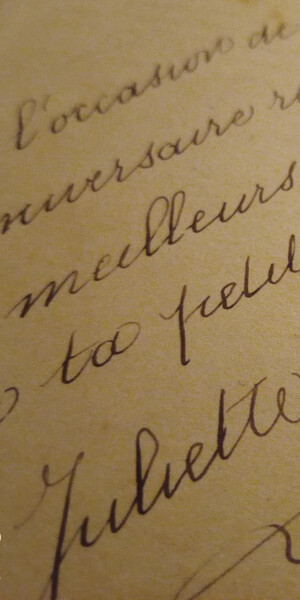 l'occasion de
nniversaire r
meilleurs
ta fidèl
Juliette